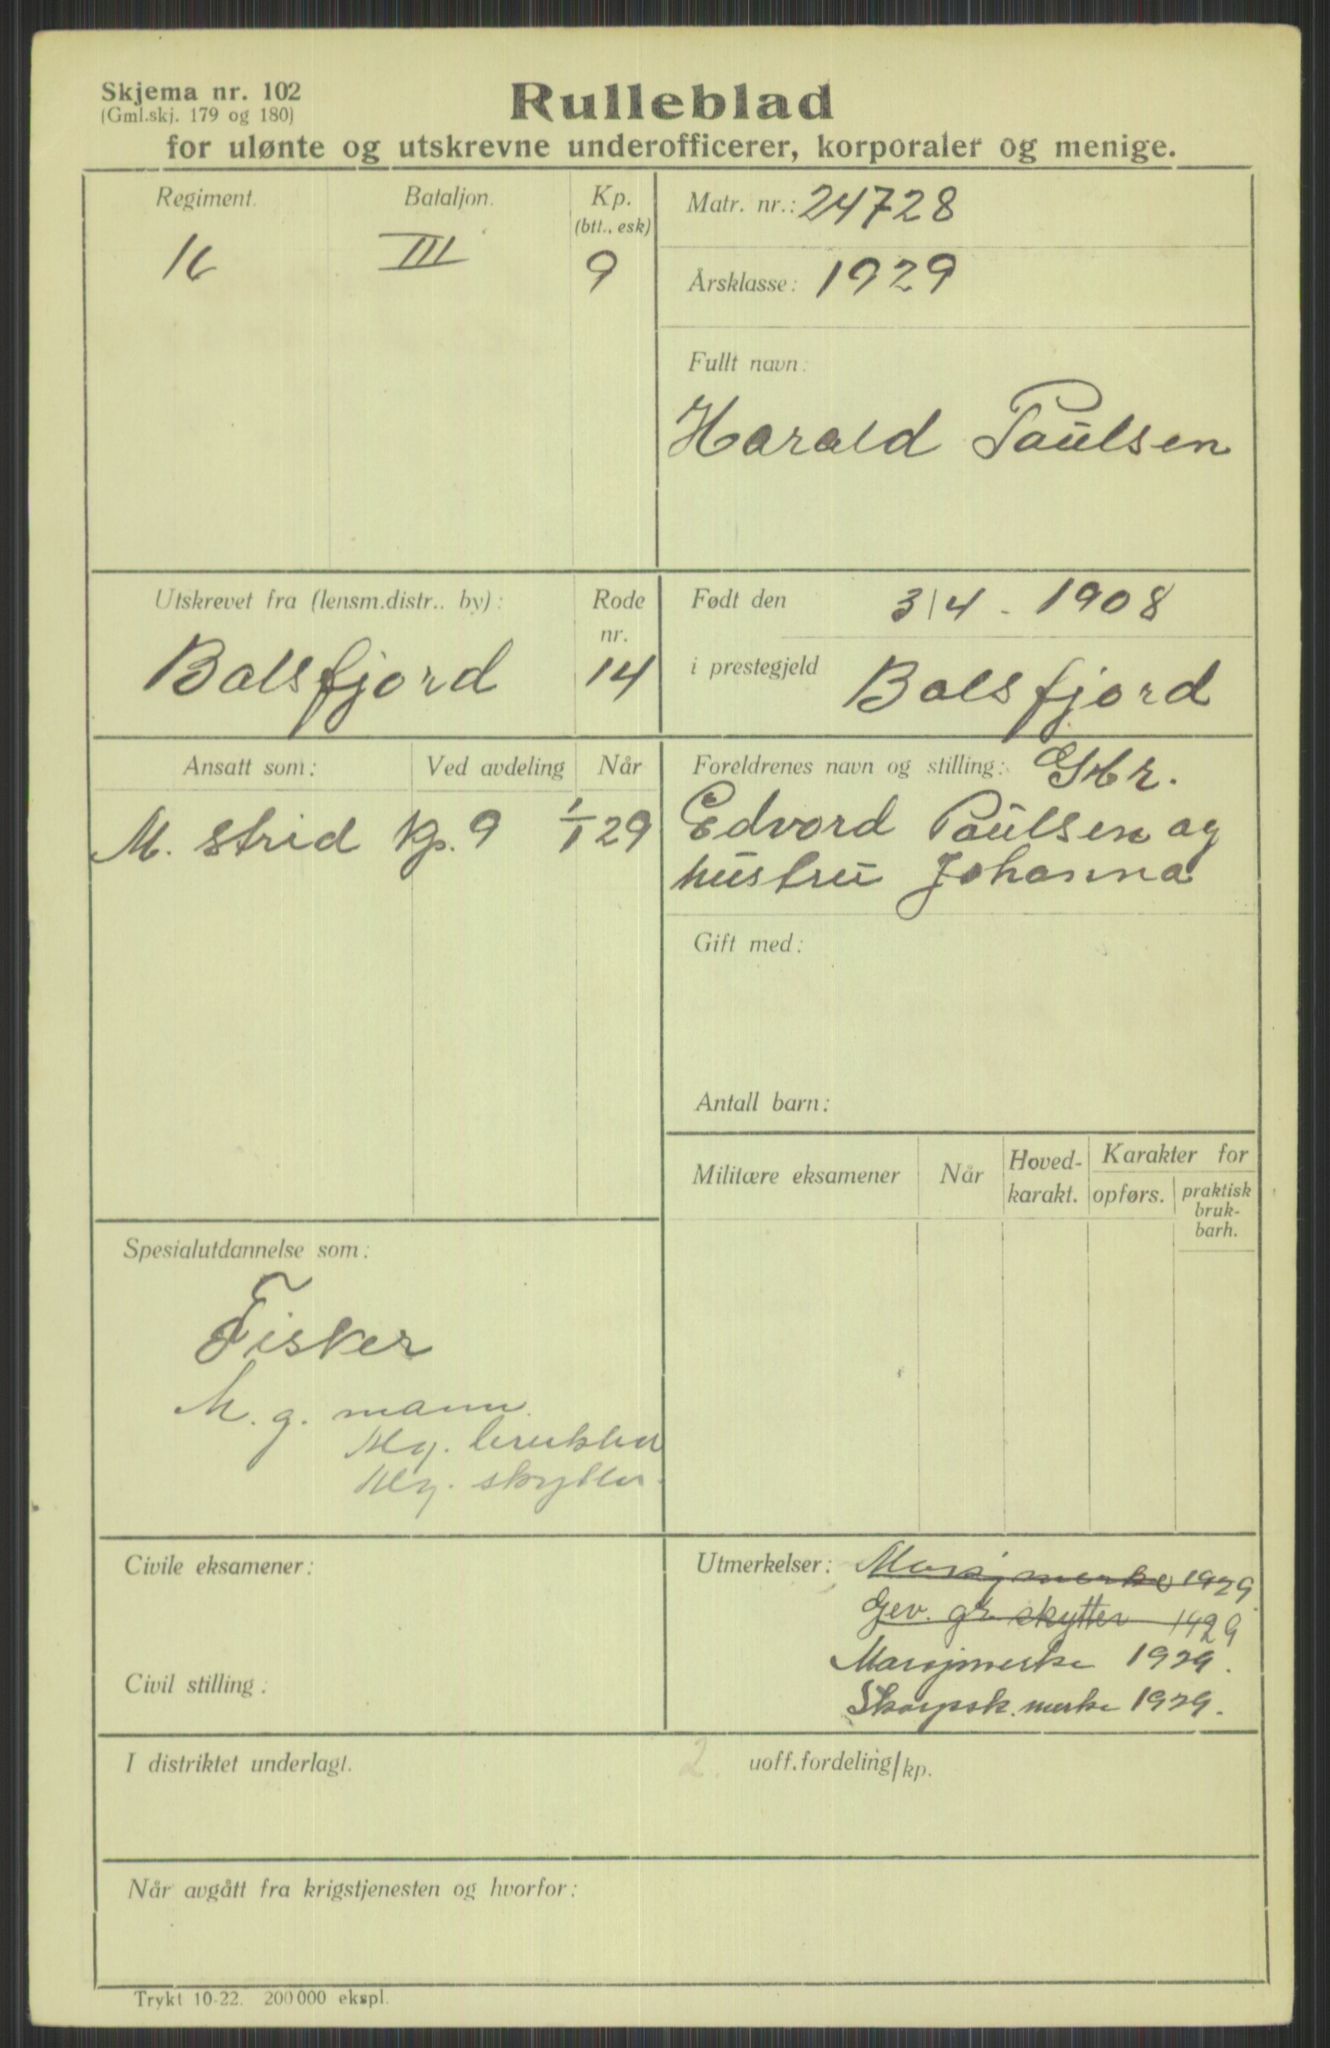 Skjema nr. 102
(Gml.skj. 179 og 180)
Rulleblad
for ulønte og utskrevne underofficerer, korporaler og menige.
Regiment.
Bataljon.
Kp.
(btt., esk)
16
III
9
Matr. nr.: 24728
Årsklasse: 1929
Fullt navn:
Harald Paulsen
Utskrevet fra (lensm.distr., by):
Rode
nr.
Balsfjord
14
Født den 3/4 - 1908
i prestegjeld Balsfjord
Ansatt som:
Ved avdeling
Når
M. strid Kp. 9 1/1 29
Foreldrenes navn og stilling: Gbr.
Edvard Paulsen og
hustru Johanna
Gift med:
Antall barn:
Militære eksamener
Når
Hoved-
karakt.
Karakter for
opførs.
praktisk
bruk-
barh.
Spesialutdannelse som:
Fisker
M. g. mann.
Mg. brukbar
Mg. skytter.
Civile eksamener:
Civil stilling:
Utmerkelser: Marsjmerke 1929
Gev. gr. skytter 1929
Marsjmerke 1929.
Skarpsk. merke 1929.
I distriktet underlagt.
2. uoff.fordeling/kp.
Når avgått fra krigstjenesten og hvorfor:
Trykt 10-22. 200 000 ekspl.